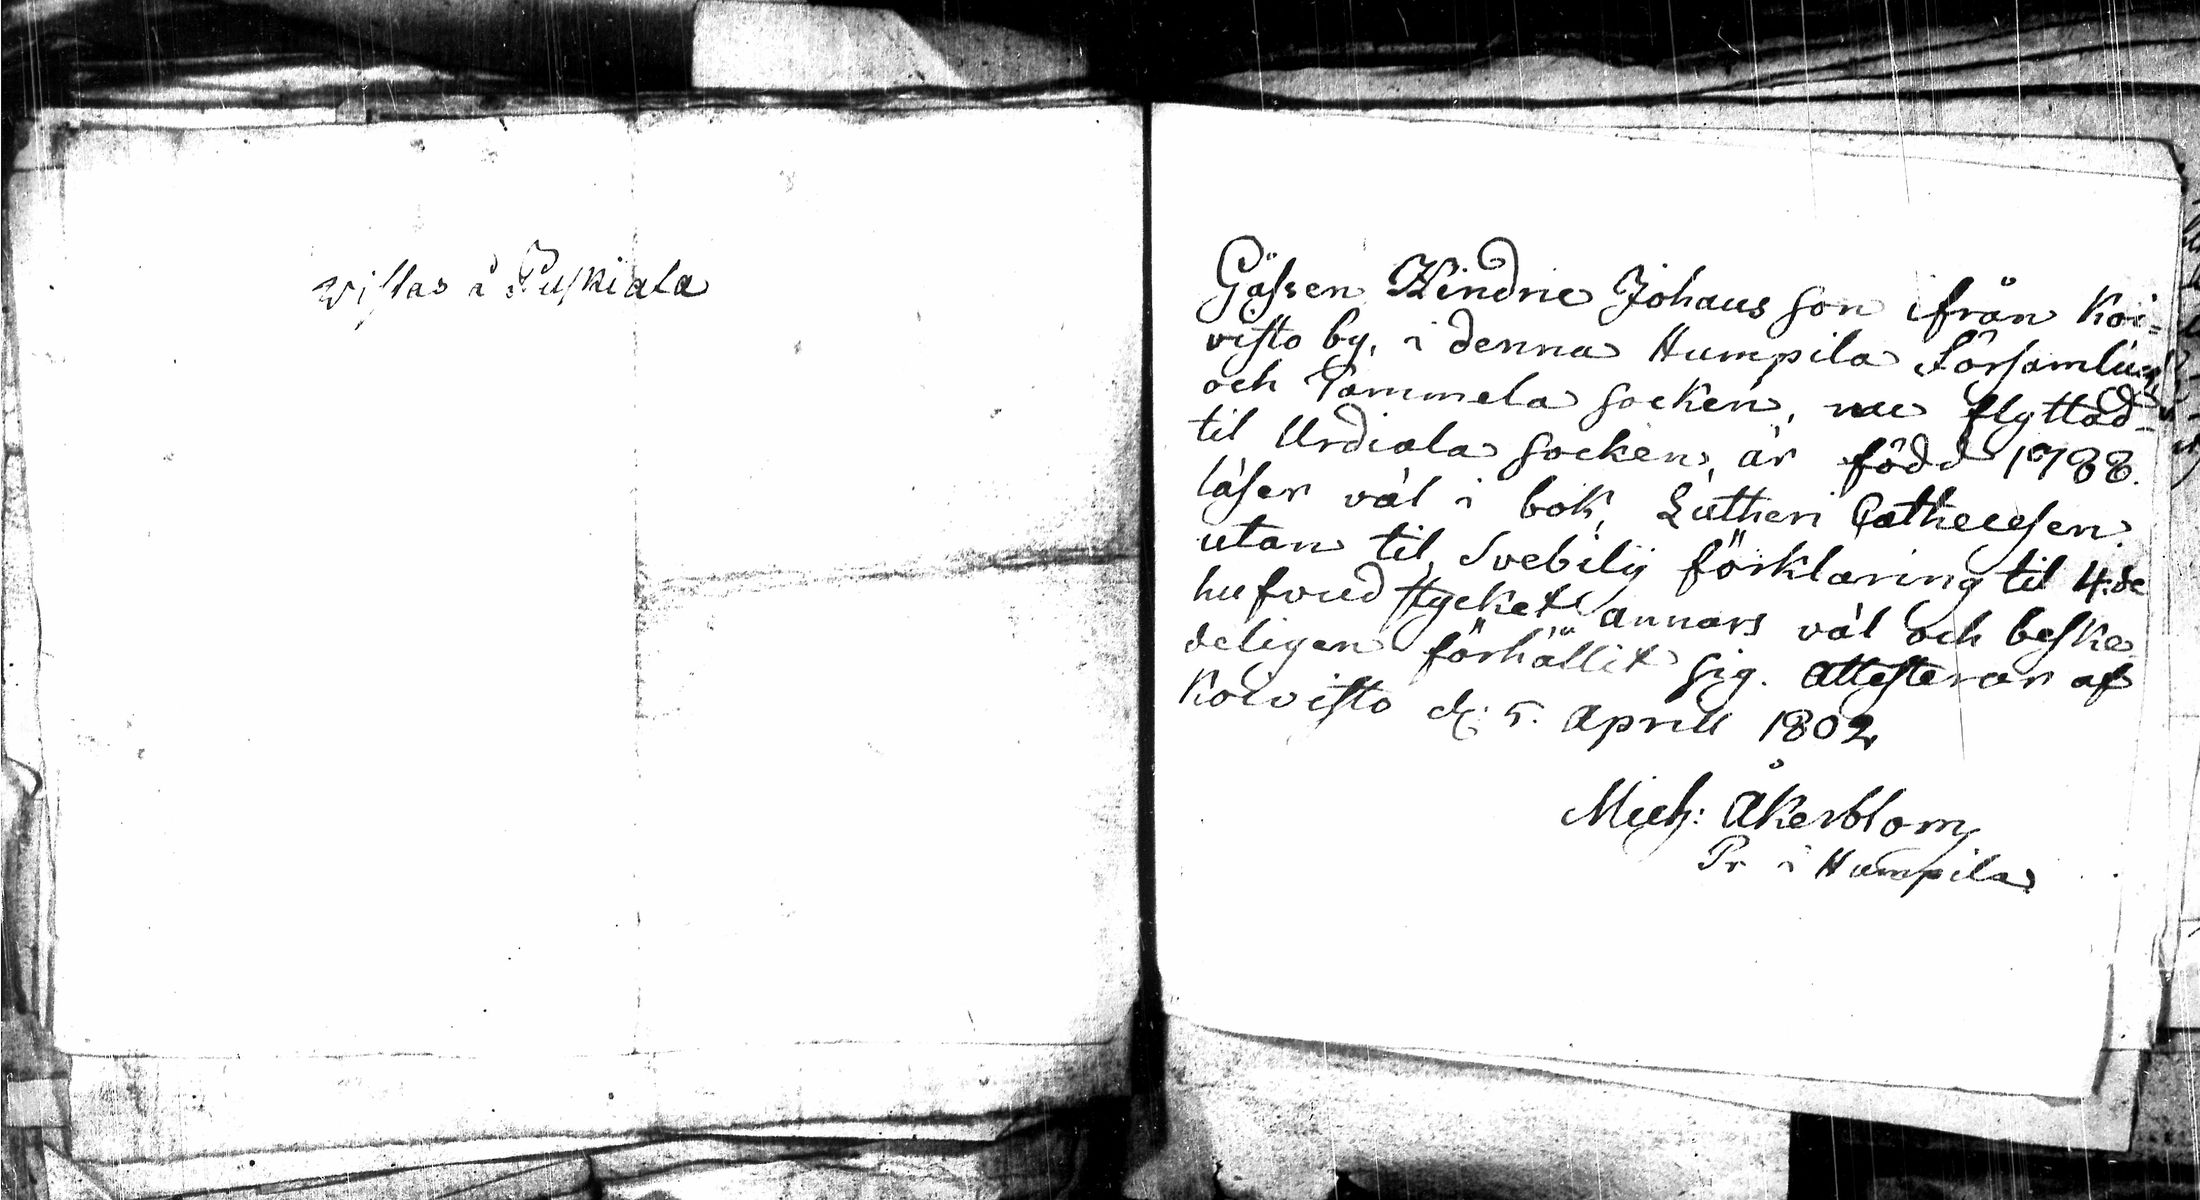 Wistas i Puskiala
Gåssen Hindric Johans son ifrån Koi-
visto by, i denna Humpila Församling
och Tammela socken, nu flyttad
til Urdiala socken, är född 1788.
läser väl i bok, Lutheri Cathecesen
utan til, Svebilij förklaring til 4:de
hufvud stycket annars väl och beske
deligen förhållit sig. Attesterar af
Koivisto d: 5. Aprill 1802
Mich: Åkerblom
Pr i Humpila